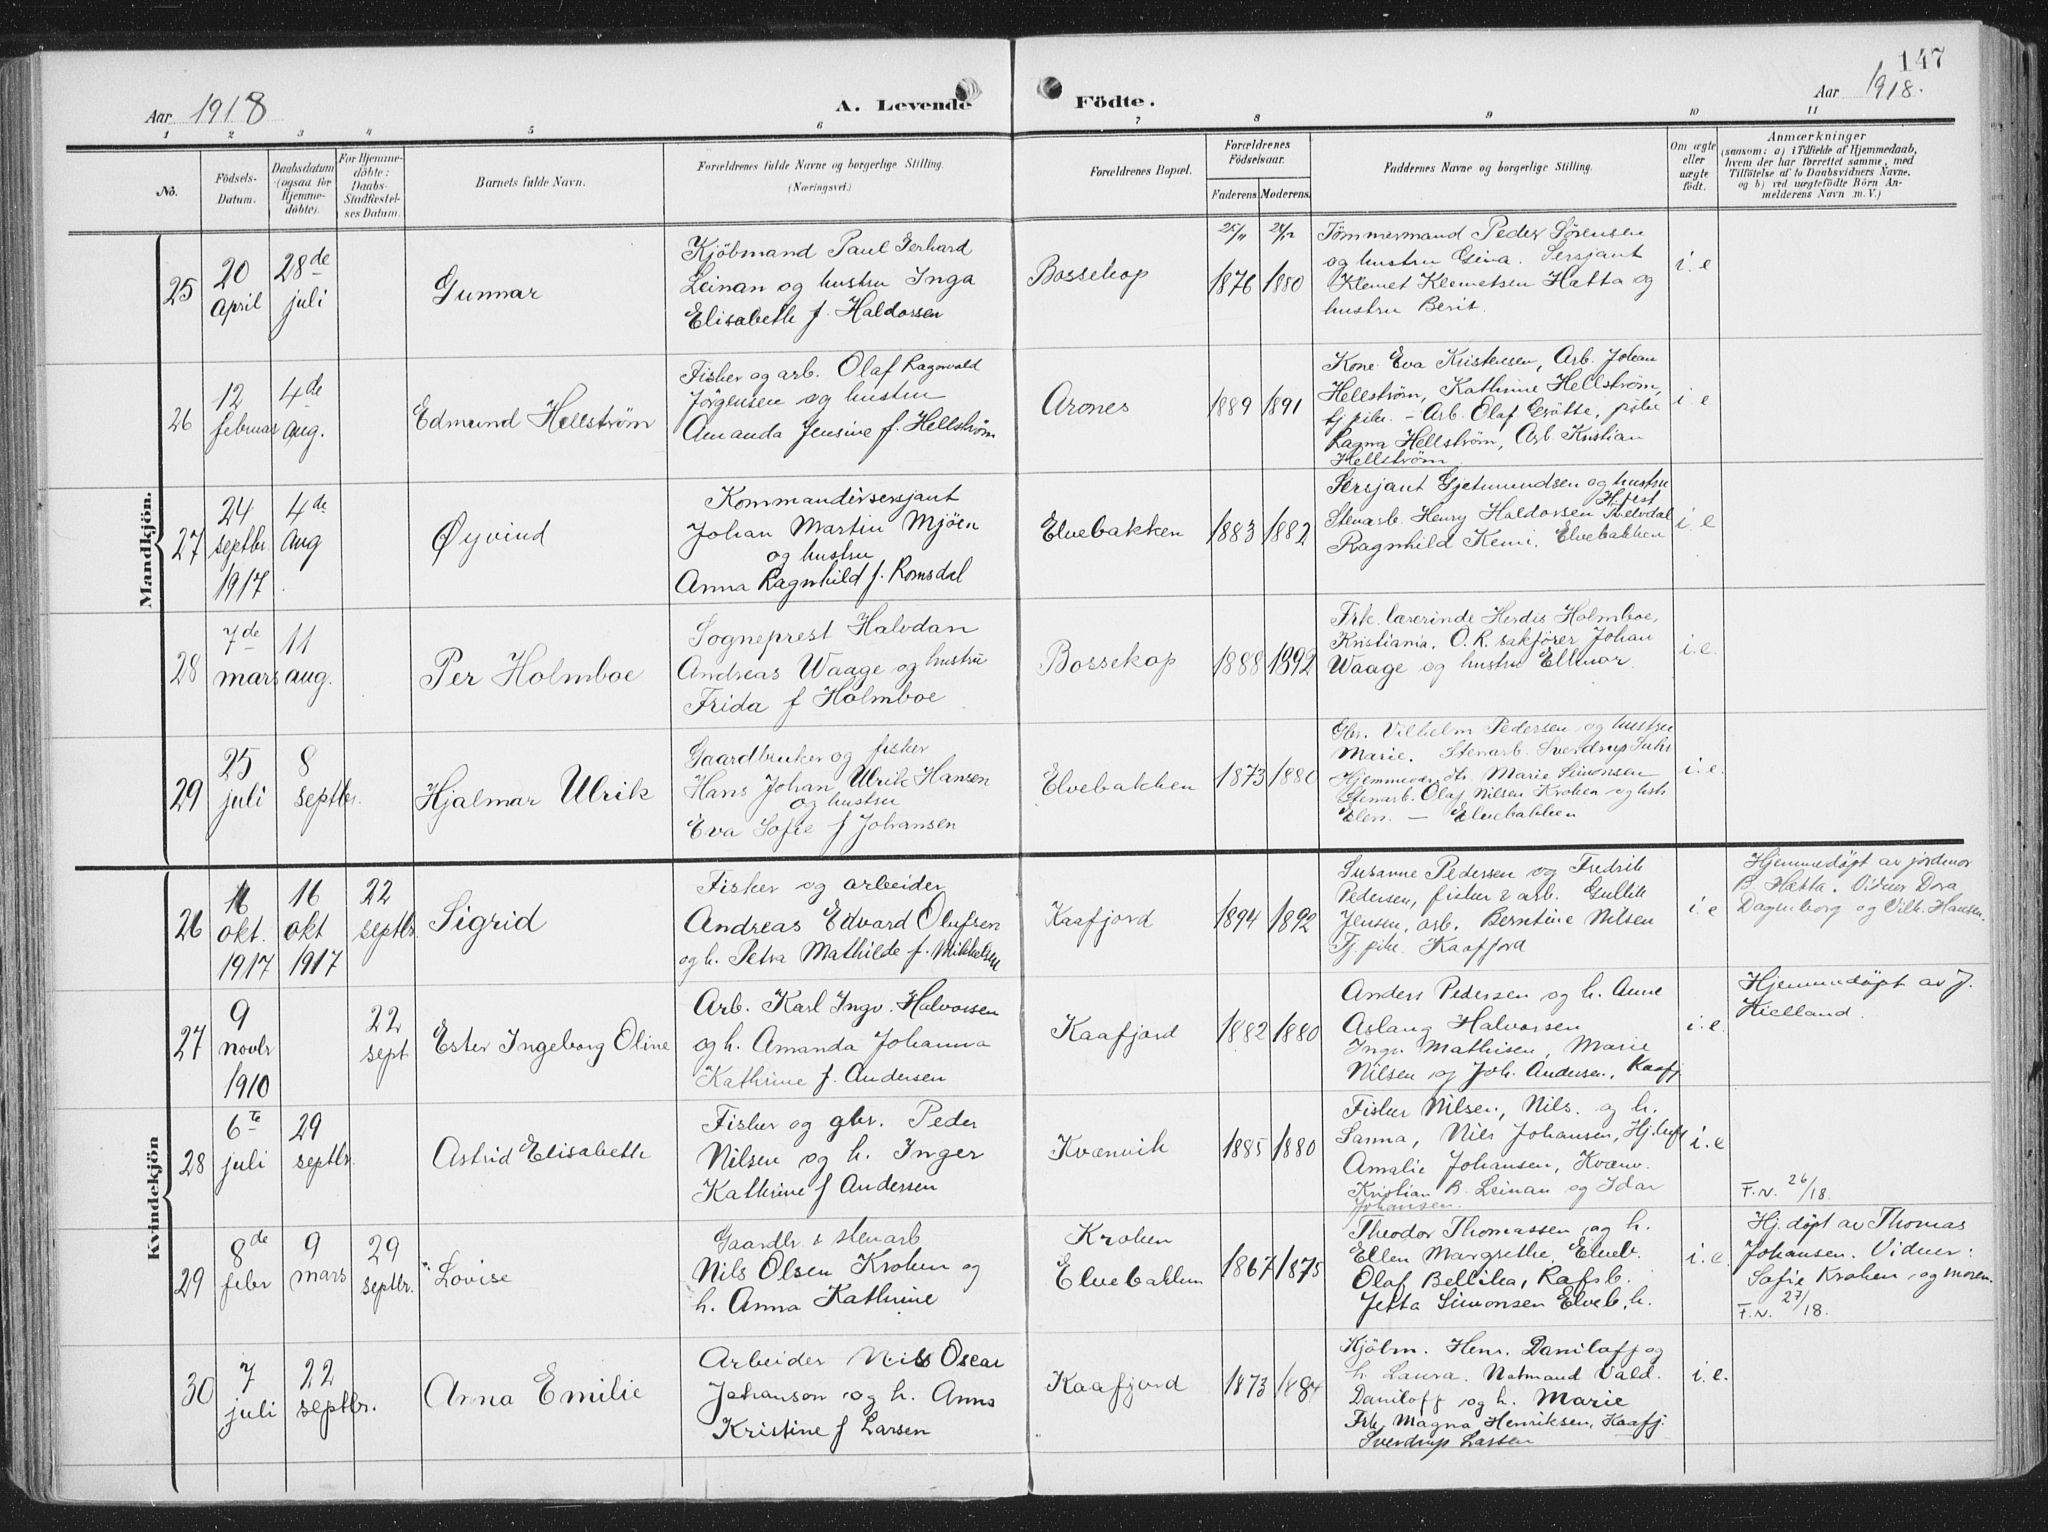 147
Aar 1918
A. Levende
Födte.
Aar 1918.
1 2 3 4 5 6 7 8 9 10 11
No.
Födsels-
Datum.
Daabsdatum
(ogsaa for
Hjemme-
döbte).
For Hjemme-
döbte:
Daabs-
Stadfæstel-
ses Datum.
Barnets fulde Navn.
Forældrenes fulde Navne og borgerlige Stilling.
(Næringsvei.)
Forældrenes Bopæl.
Forældrenes
Födselsaar.
Faderens. Moderens.
Faddernes Navne og borgerlige Stilling.
Om ægte
eller
uægte
födt.
Anmærkninger
(saasom: a) i Tilfælde af Hjemmedaab,
hvem der har forrettet samme, med
Tilföielse af to Daabsvidners Navne.
og b) ved uægtefödte Börn An-
melderens Navn m. V.)
Mandkjön.
25
20
april
28de
juli
Gunnar
Kjöbmand Paul Gerhard
Leinan og hustru Inga
Elisabeth f. Haldorsen
Bossekop
25/11
1876
1880
Tömmermand Peder Sörensen
og hustru Gina. Sersjant
Klemet Klemetsen Hætta og
hustru Berit.
i. e
26
12
februar
4de
aug.
Edmund Hellström
Fisker og arb. Olaf Ragnvald
Jörgensen og hustru
Amanda Jensine f. Hellström
Arones
1889
1891
Kone Eva Kristensen, Arb. Johan
Hellström, Kathrine Hellström,
tj pike. – Arb. Olaf Grötte, pike
Ragna Hellström, Arb. Kristian
Hellström.
i. e
27
24
septbr.
1917
4de
aug
Øyvind
Kommandersersjant
Johan Martin Mjöen
og hustru
Anna Ragnhild f. Romsdal
Elvebakken
1883
1882
Sersjant Gjetmundsen og hustru
Stenarb. Henry Haldorsen
Ragnhild Kemi. Elvebakken
i. e
28
7de
mars
11
aug.
Per Holmboe
Sogneprest Halvdan
Andreas Waage og hustru
Frida f Holmboe
Bossekop
1888
1892
Frk. lærerinde Herdis Holmboe,
Kristiania. O.R. sakförer Johan
Waage og hustru Ellinor.
i. e.
29
25
juli
8
septbr.
Hjalmar Ulrik
Gaardbruker og fisker
Hans Johan Ulrik Hansen
og hustru
Eva Sofie f Johansen
Elvebakken
1873
1880
Gbr. Vilhelm Pedersen og hustru
Marie. Stenarb. Sverdrup Suhr
Marie Simonsen
Stenarb. Olaf Nilsen Krohen og hstr
Elen. – Elvebakken
i. e.
Kvindekjön
26
16
okt.
1917
16
okt
1917
22
septbr.
Sigrid
Fisker og arbeider
Andreas Edvard Olufsen
og h. Petra Mathilde f. Mikkelsen
Kaafjord
1894
1892
Susanne Pedersen og Fredrik
Pedersen, fisker & arb. Gullik
Jensen, arb. Berntine Nilsen
Tj. pike. Kaafjord
i. e
Hjemmedöpt av jordmor
B. Hætta. Vidner Dora
Dagenborg og Vilh. Hansen.
27
9
novbr
1910
22
sept
Ester Ingeborg Oline
Arb. Karl Ingv. Halvorsen
og h. Amanda Johanna
Kathrine f. Andersen
Kaafjord
1882
1880
Anders Pedersen og h. Anne
Aslaug Halvorsen
Ingv. Mathisen, Marie
Nilsen og Joh. Andersen, Kaafj
i. e.
Hjemmedöpt av J.
Kielland.
28
6te
juli
29
septbr.
Astrid Elisabeth
Fisker og gbr. Peder
Nilsen og h. Inger
Kathrine f Andersen
Kvænvik
1885
1880
Fisker Nilsen, Nils. og h.
Sanna, Nils Johansen,
Amalie Johansen, Kvænv.
Kristian B. Leinan og Idar
Johansen.
i. e
F.N. 26/18.
29
8de
febr
9
mars
29
septbr.
Lovise
Gaardbr & stenarb
Nils Olsen Krohen og
h. Anna Kathrine
Krohen
Elvebakken
1867
1875
Theodor Thomassen og h.
Ellen Margrethe, Elveb.
Olaf Bellika, Rafsb.
Jetta Simonsen Elveb. h.
i. e.
Hj. döpt av Thomas
Johansen. Vidner:
Sofie Krohen og moren.
F.N. 27/18.
30
7
juli
22
septbr.
Anna Emilie
Arbeider Nils Oscar
Johanson og h. Anna
Kristine f Larsen
Kaafjord
1873
1884
Kjöbm. Henr. Daniloff og
h. Laura. Notmand Vald.
Daniloff og h. Marie
Frk. Magna Henriksen, Kaafj.
Sverdrup Larsen
i. e.